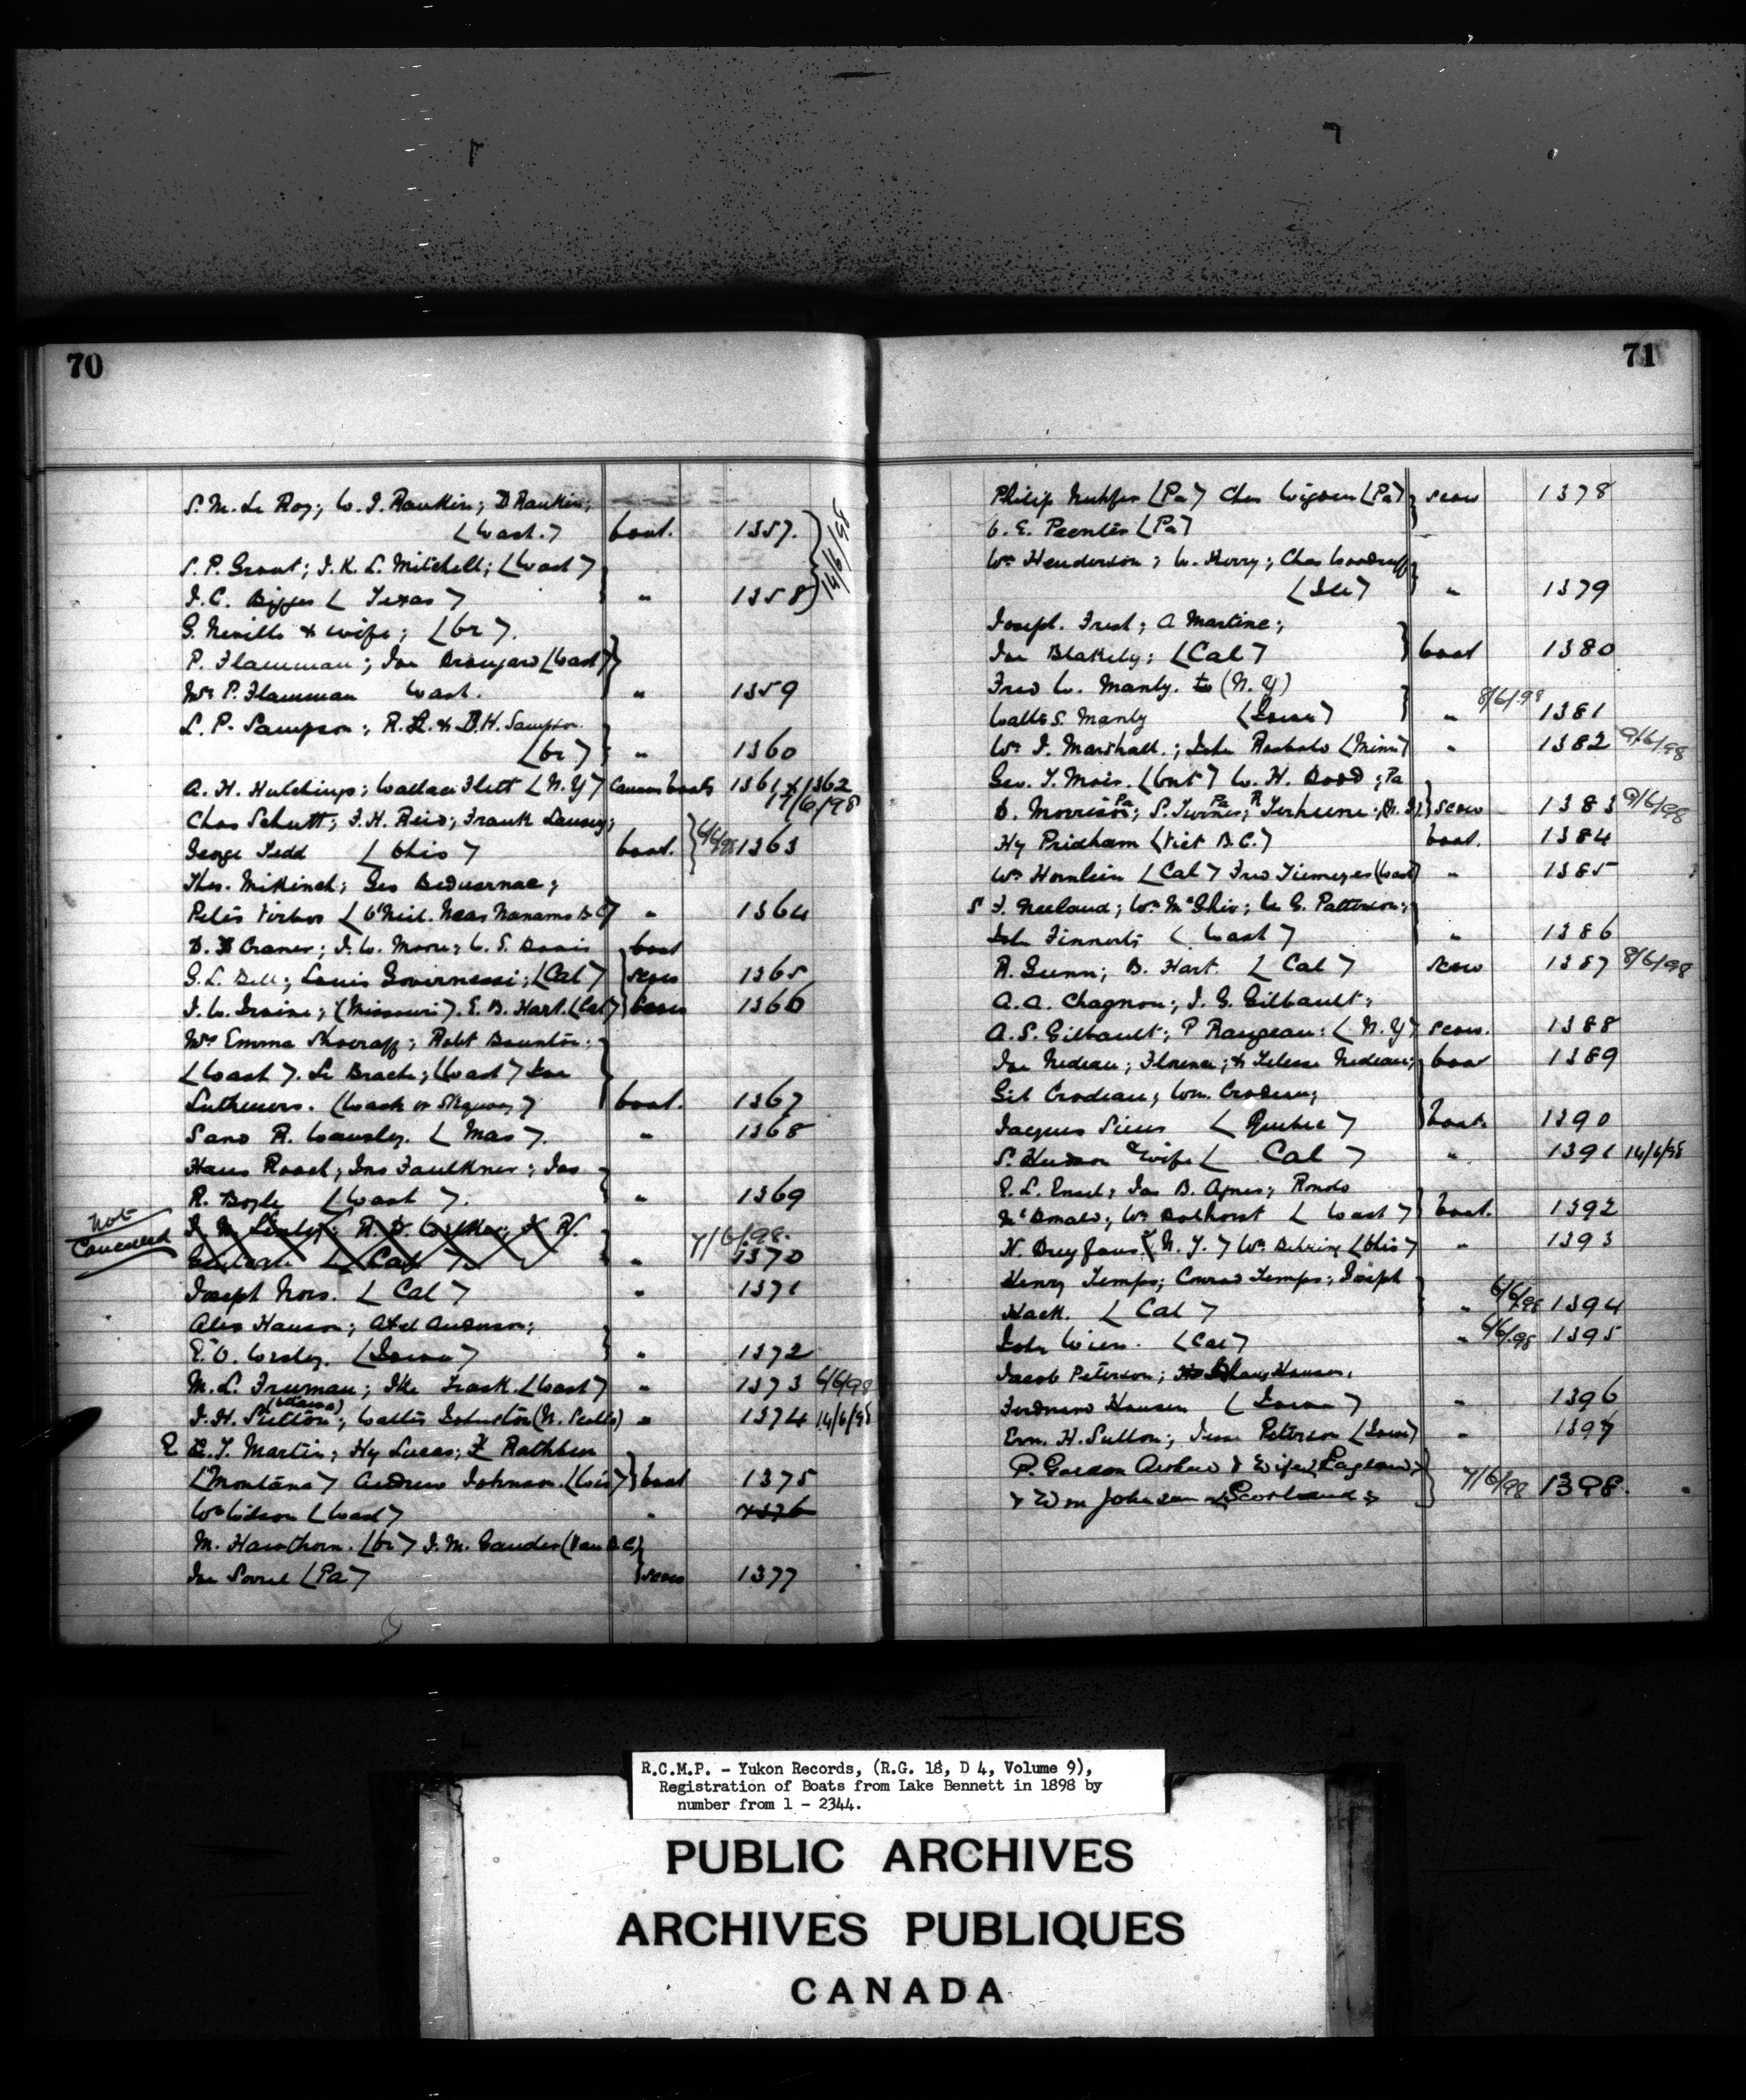 70
S. M. Le Roy; W. J. Rankin; D Rankin;
(Wash.) boat. 1357.
S. P. Grant; J. K. L. Mitchell; (Wash)
J. C. Bigges (Texas) " 1358 } 14/6/98
G. Neville & wife; (Or).
P. Flamman; Joe (Wash)
Mrs P. Flamman Wash. " 1359
L. P. Sampson; R. L. & D. H. Sampson.
(Or) " 1360
A. H. Hutchings; Wallace Flett (N. Y) Canvas boats 1361 & 1362
17/6/98
Chas Schutt; F. H. Reid; Frank
George Tedd (Ohio) boat. 6/6/98 1363
Thos. McKinch; Geo
Peter (O'Neil. Near Nanamo B.C) " 1364
D. Craner; J. W. Moore; W. S. Davis boat
G. L. Bell; Louis Governessi; (Cal) scow 1365
J. W. Irvine; (Missouri). E. B. Hart. (Cal) 1366
Mrs Emma; Robt Bounton;
(Wash). Le Brache; (Wash) Joe
Lutheners. (Wash or Skguay) boat. 1367
Sand R. Wamsley. (Mas). " 1368
Hans Roach; Jno Faulkner; Jas
R. Boyle (Wash). " 1369
Not
Cancelled
J. M.; R. D. Walker; R.
(Cal) " 7/6/98. 1370
Joseph Nors. (Cal) " 1371
Alex Hanson; Axel Anderson;
E. O. Worley. (Iowa) " 1372
M. L. Freeman; Ike Trask. (Wash) " 1373 6/6/98
(Ottawa)
J. H. Sutton; Walter Johnston (N. Scotla) " 1374 14/6/98
E. T. Martin; Hy Lucas; F Rathbun
(Montana) Andrew Johnson. (Wis) boat 1375
Wm Wilson (Wash) " 1376
M. Hawthorn. (Or) J. M. Gauder (Van B.C)
Joe Sovrel (Pa) scow 1377
71
Philip Nuhfer (Pa) Chas Wigden (Pa) scow 1378
C. E. Peenter (Pa)
Wm Henderson; W. Herry; Chas Woodruff
(Ill) " 1379
Joseph. Frest; A Martine;
Joe Blakely; (Cal) boat 1380
Fred W. Manly. to (N. Y)
Walter S. Manly (Iowa) " 8/6/98 1381
Wm J. Marshall.; John Rasholo (Minn) " 1382 9/6/98
Geo. T. Mois. (Ont) W. H. Dodd; Pa
D. Morrison Pa; S. Turner Pa; R Terheune; (R. I) scow 1383 9/6/98
Hy Pridham (Vict B.C.) boat. 1384
Wm Hornlein (Cal) Fred Tiemeyer (Wash) " 1385
S F. Neeland; Wm McGhie; W G. Patterson;
John Finnerty (Wash) " 1386
R. Gunn; B. Hart. (Cal) scow 1387 8/6/98
A. A. Chagnon; J. G. Gilbault;
A. S. Gilbault; P Rangeau: (N. Y) scow. 1388
Joe Nedeau; Florence; & Telesse Nedeau; boat 1389
Gil Crodeau; Wm. Crodeau;
Jacques Sicus (Quebec) boat. 1390
S. Hudson & wife (Cal) " 1391 14/6/98
P. L. Ensel; Jas B. Agnes; Rondo
McDonald; Wm Dolhorst (Wash) boat. 1392
H. Dreyfous (N. Y.) Wm Behring (Ohio) " 1393
Henry Temps; Conrad Temps; Joseph
Hack. (Cal) " 6/6/98 1394
John Wiern. (Cal) " 6/6/98 1395
Jacob Peterson; Hans Hansen;
Ferdnand Hansen (Iowa) " 1396
Ern. H. Sutton; Jesse Peterson (Iowa) " 1397
P. Gordon Archer & Wife (England)
& Wm Johnson (Scotland) 7/6/98 1398.
R.C.M.P. - Yukon Records, (R.G. 18, D 4, Volume 9),
Registration of Boats from Lake Bennett in 1898 by
number from 1 - 2344.
PUBLIC ARCHIVES
ARCHIVES PUBLIQUES
CANADA